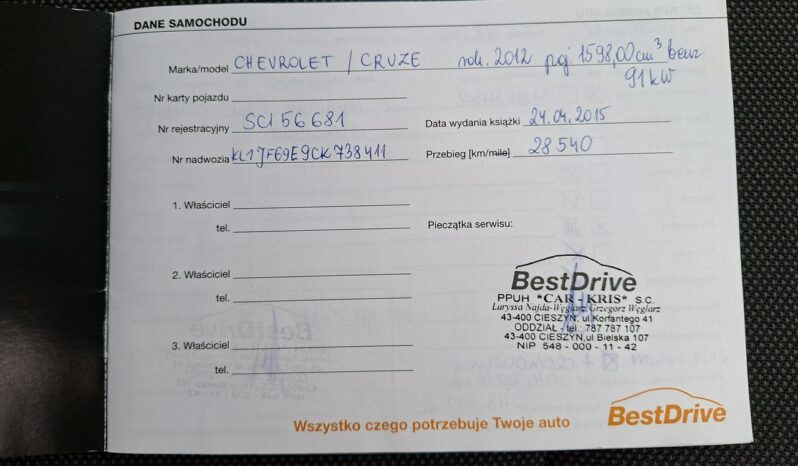 DANE SAMOCHODU
Marka/model CHEVROLET / CRUZE rok. 2012 poj 1598,00cm³ benz
91kW
Nr karty pojazdu
Nr rejestracyjny SCI 56681 Data wydania książki 24.04.2015
Nr nadwozia KL1JF69E9CK738411 Przebieg [km/mile] 28540
1. Właściciel
tel. Pieczątka serwisu:
2. Właściciel
tel.
3. Właściciel
tel.
BestDrive
PPUH *CAR - KRIS* S.C.
Laryssa Najda-Węglarz, Grzegorz Węglarz
43-400 CIESZYN, ul.Korfantego 41
ODDZIAŁ, tel.: 787 787 107
43-400 CIESZYN,ul.Bielska 107
NIP 548 - 000 - 11 - 42
Wszystko czego potrzebuje Twoje auto BestDrive